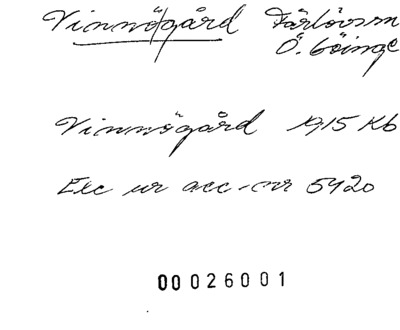 Vinnögård Färlövs sn
Ö. Göinge
Vinnögård 1915 Kb
Exc ur acc.-nr 5920
00026001